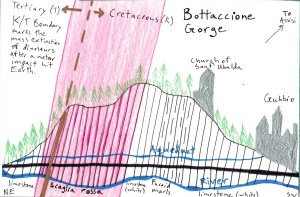 Tertiary (T)
Cretaceous (K)
Bottaccione
Gorge
To
Assisi
K/T Boundary
marks the
mass extinction
of dinosaurs
after a meteor
impact hit
Earth.
Church of
Sant' Ubaldo
Gubbio
Aqueduct
River
limestone
NE
Scaglia rossa
limestone
(white)
Fucoid
marls
limestone (white)
SW